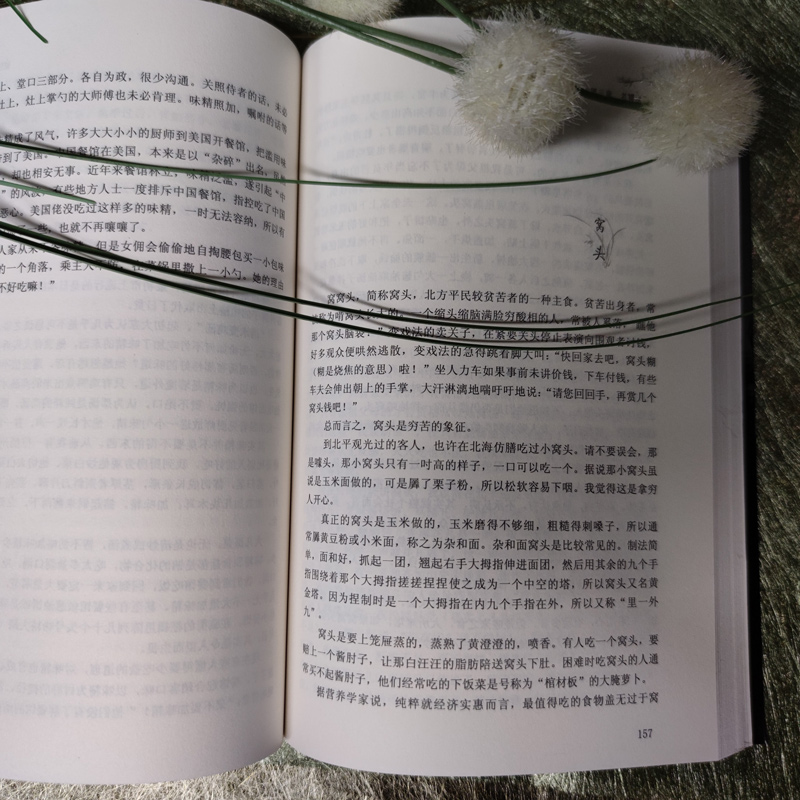 上、堂口三部分。各自为政，很少沟通。关照侍者的话，未必
灶上，灶上掌勺的大师傅也未必肯理。味精照加，嘱咐的话等
成了风气，许多大大小小的厨师到美国开餐馆，把滥用味
到了美国。中国餐馆在美国，本来是以“杂碎”出名，
却也相安无事。近年来餐馆林立，味精泛滥，遂引起“中
”的风波，有些地方人士一度排斥中国餐馆，指控吃了中国
恶心，美国佬没吃过这样多的味精，一时无法容纳，所以有
些，也就不再嚷嚷了。
人家从来，但是女佣会偷偷地自掏腰包买一小包味
的一个角落，乘主人不，在菜锅里撒上一小勺。她的理由
不好吃嘛！”
窝头
窝窝头，简称窝头，北方平民较贫苦者的一种主食。贫苦出身者，常
称为啃窝头长大的。一个缩头缩脑满脸穷酸相的人，常被人
那个窝头脑袋！”变戏法的卖关子，在紧要关头停止表演向围观者讨钱，
好多观众便哄然逃散，变戏法的急得跳着脚大叫：“快回家去吧，窝头糊
（糊是烧焦的意思）啦！”坐人力车如果事前未讲价钱，下车付钱，有些
车夫会伸出朝上的手掌，大汗淋漓地喘吁吁地说：“请您回回手，再赏几个
窝头钱吧！”
总而言之，窝头是穷苦的象征。
到北平观光过的客人，也许在北海仿膳吃过小窝头。请不要误会，那
是噱头，那小窝头只有一吋高的样子，一口可以吃一个。据说那小窝头虽
说是玉米面做的，可是羼了栗子粉，所以松软容易下咽。我觉得这是拿穷
人开心。
真正的窝头是玉米做的，玉米磨得不够细，粗糙得刺嗓子，所以通
常羼黄豆粉或小米面，称之为杂和面。杂和面窝头是比较常见的。制法简
单，面和好，抓起一团，翘起右手大拇指伸进面团，然后用其余的九个手
指围绕着那个大拇指搓搓捏捏使之成为一个中空的塔，所以窝头又名黄
金塔。因为捏制时是一个大拇指在内九个手指在外，所以又称“里一外
九”。
窝头是要上笼屉蒸的，蒸熟了黄澄澄的，喷香。有人吃一个窝头，要
赔上一个酱肘子，让那白汪汪的脂肪陪送窝头下肚。困难时吃窝头的人通
常买不起酱肘子，他们经常吃的下饭菜是号称为“棺材板”的大腌萝卜。
据营养学家说，纯粹就经济实惠而言，最值得吃的食物盖无过于窝
157